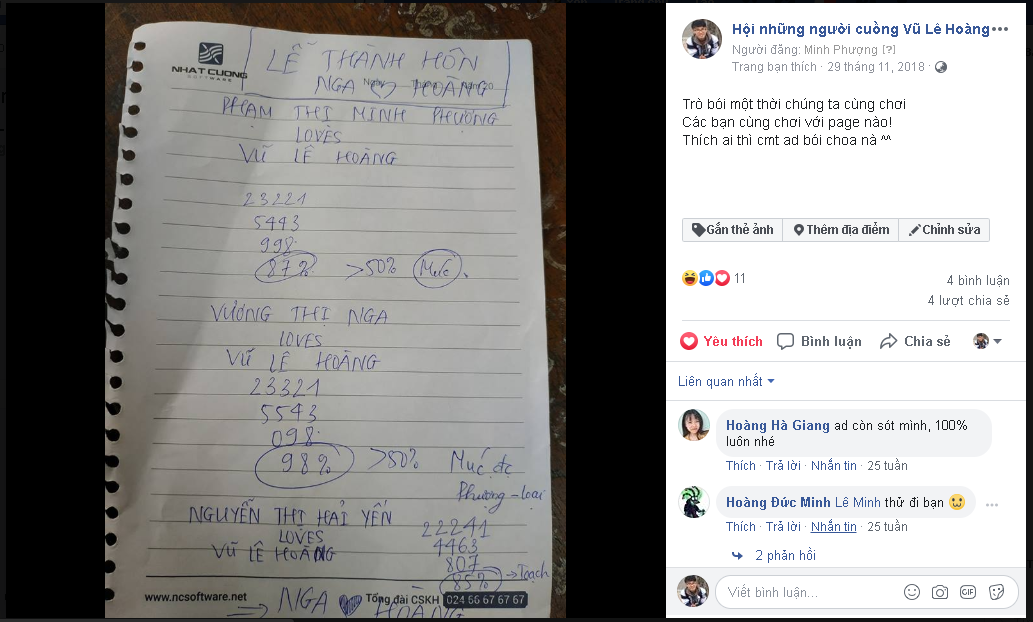 NHAT CUONG
SOFTWARE
LỄ THÀNH HÔN
NGA HOÀNG
PHẠM THỊ MINH PHƯỢNG
LOVES
VŨ LÊ HOÀNG
23221
5443
998
87%
>50%
VƯƠNG THỊ NGA
LOVES
VŨ LÊ HOÀNG
23321
5543
098
98%
>50%
Phượng - loại
NGUYỄN THỊ HẢI YẾN
LOVES
VŨ LÊ HOÀNG
22241
4463
807
85%
→Toạch
www.ncsoftware.net
Tổng đài CSKH 024 66 67 67 67
NGA HOÀNG
Hội những người cuồng Vũ Lê Hoàng
Người đăng: Minh Phượng [?]
Trang bạn thích · 29 tháng 11, 2018 ·
Trò bói một thời chúng ta cùng chơi
Các bạn cùng chơi với page nào!
Thích ai thì cmt ad bói choa nà ^^
Gắn thẻ ảnh
Thêm địa điểm
Chỉnh sửa
11
4 bình luận
4 lượt chia sẻ
Yêu thích
Bình luận
Chia sẻ
Liên quan nhất
Hoàng Hà Giang ad còn sót mình, 100%
luôn nhé
Thích · Trả lời · Nhắn tin · 25 tuần
Hoàng Đức Minh Lê Minh thử đi bạn
Thích · Trả lời · Nhắn tin · 25 tuần
2 phản hồi
Viết bình luận...
GIF